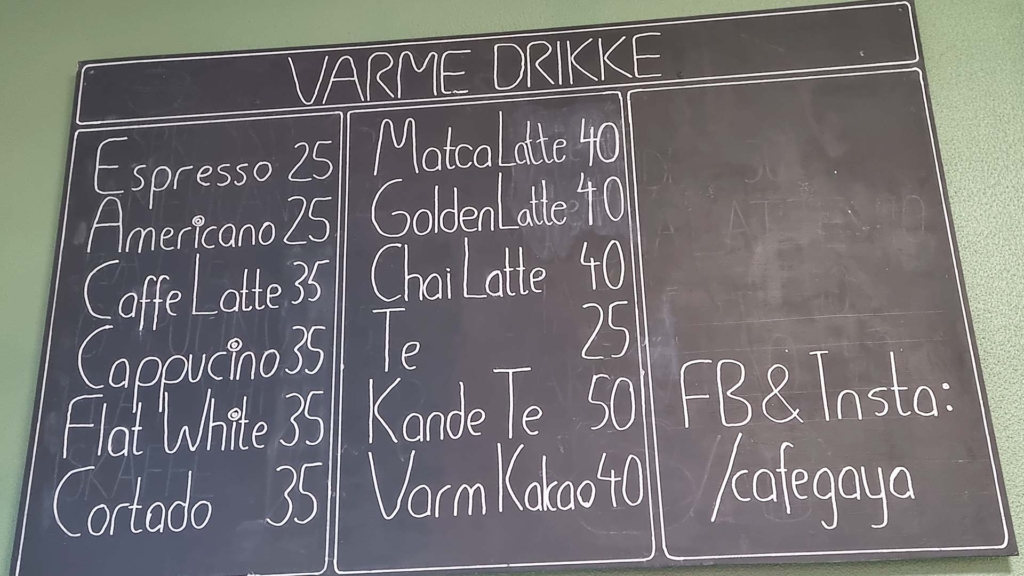 VARME DRIKKE
Espresso 25
Americano 25
Caffe Latte 35
Cappucino 35
Flat White 35
Cortado 35
Matca Latte 40
Golden Latte 40
Chai Latte 40
Te 25
Kande Te 50
Varm Kakao 40
FB & Insta:
/cafegaya